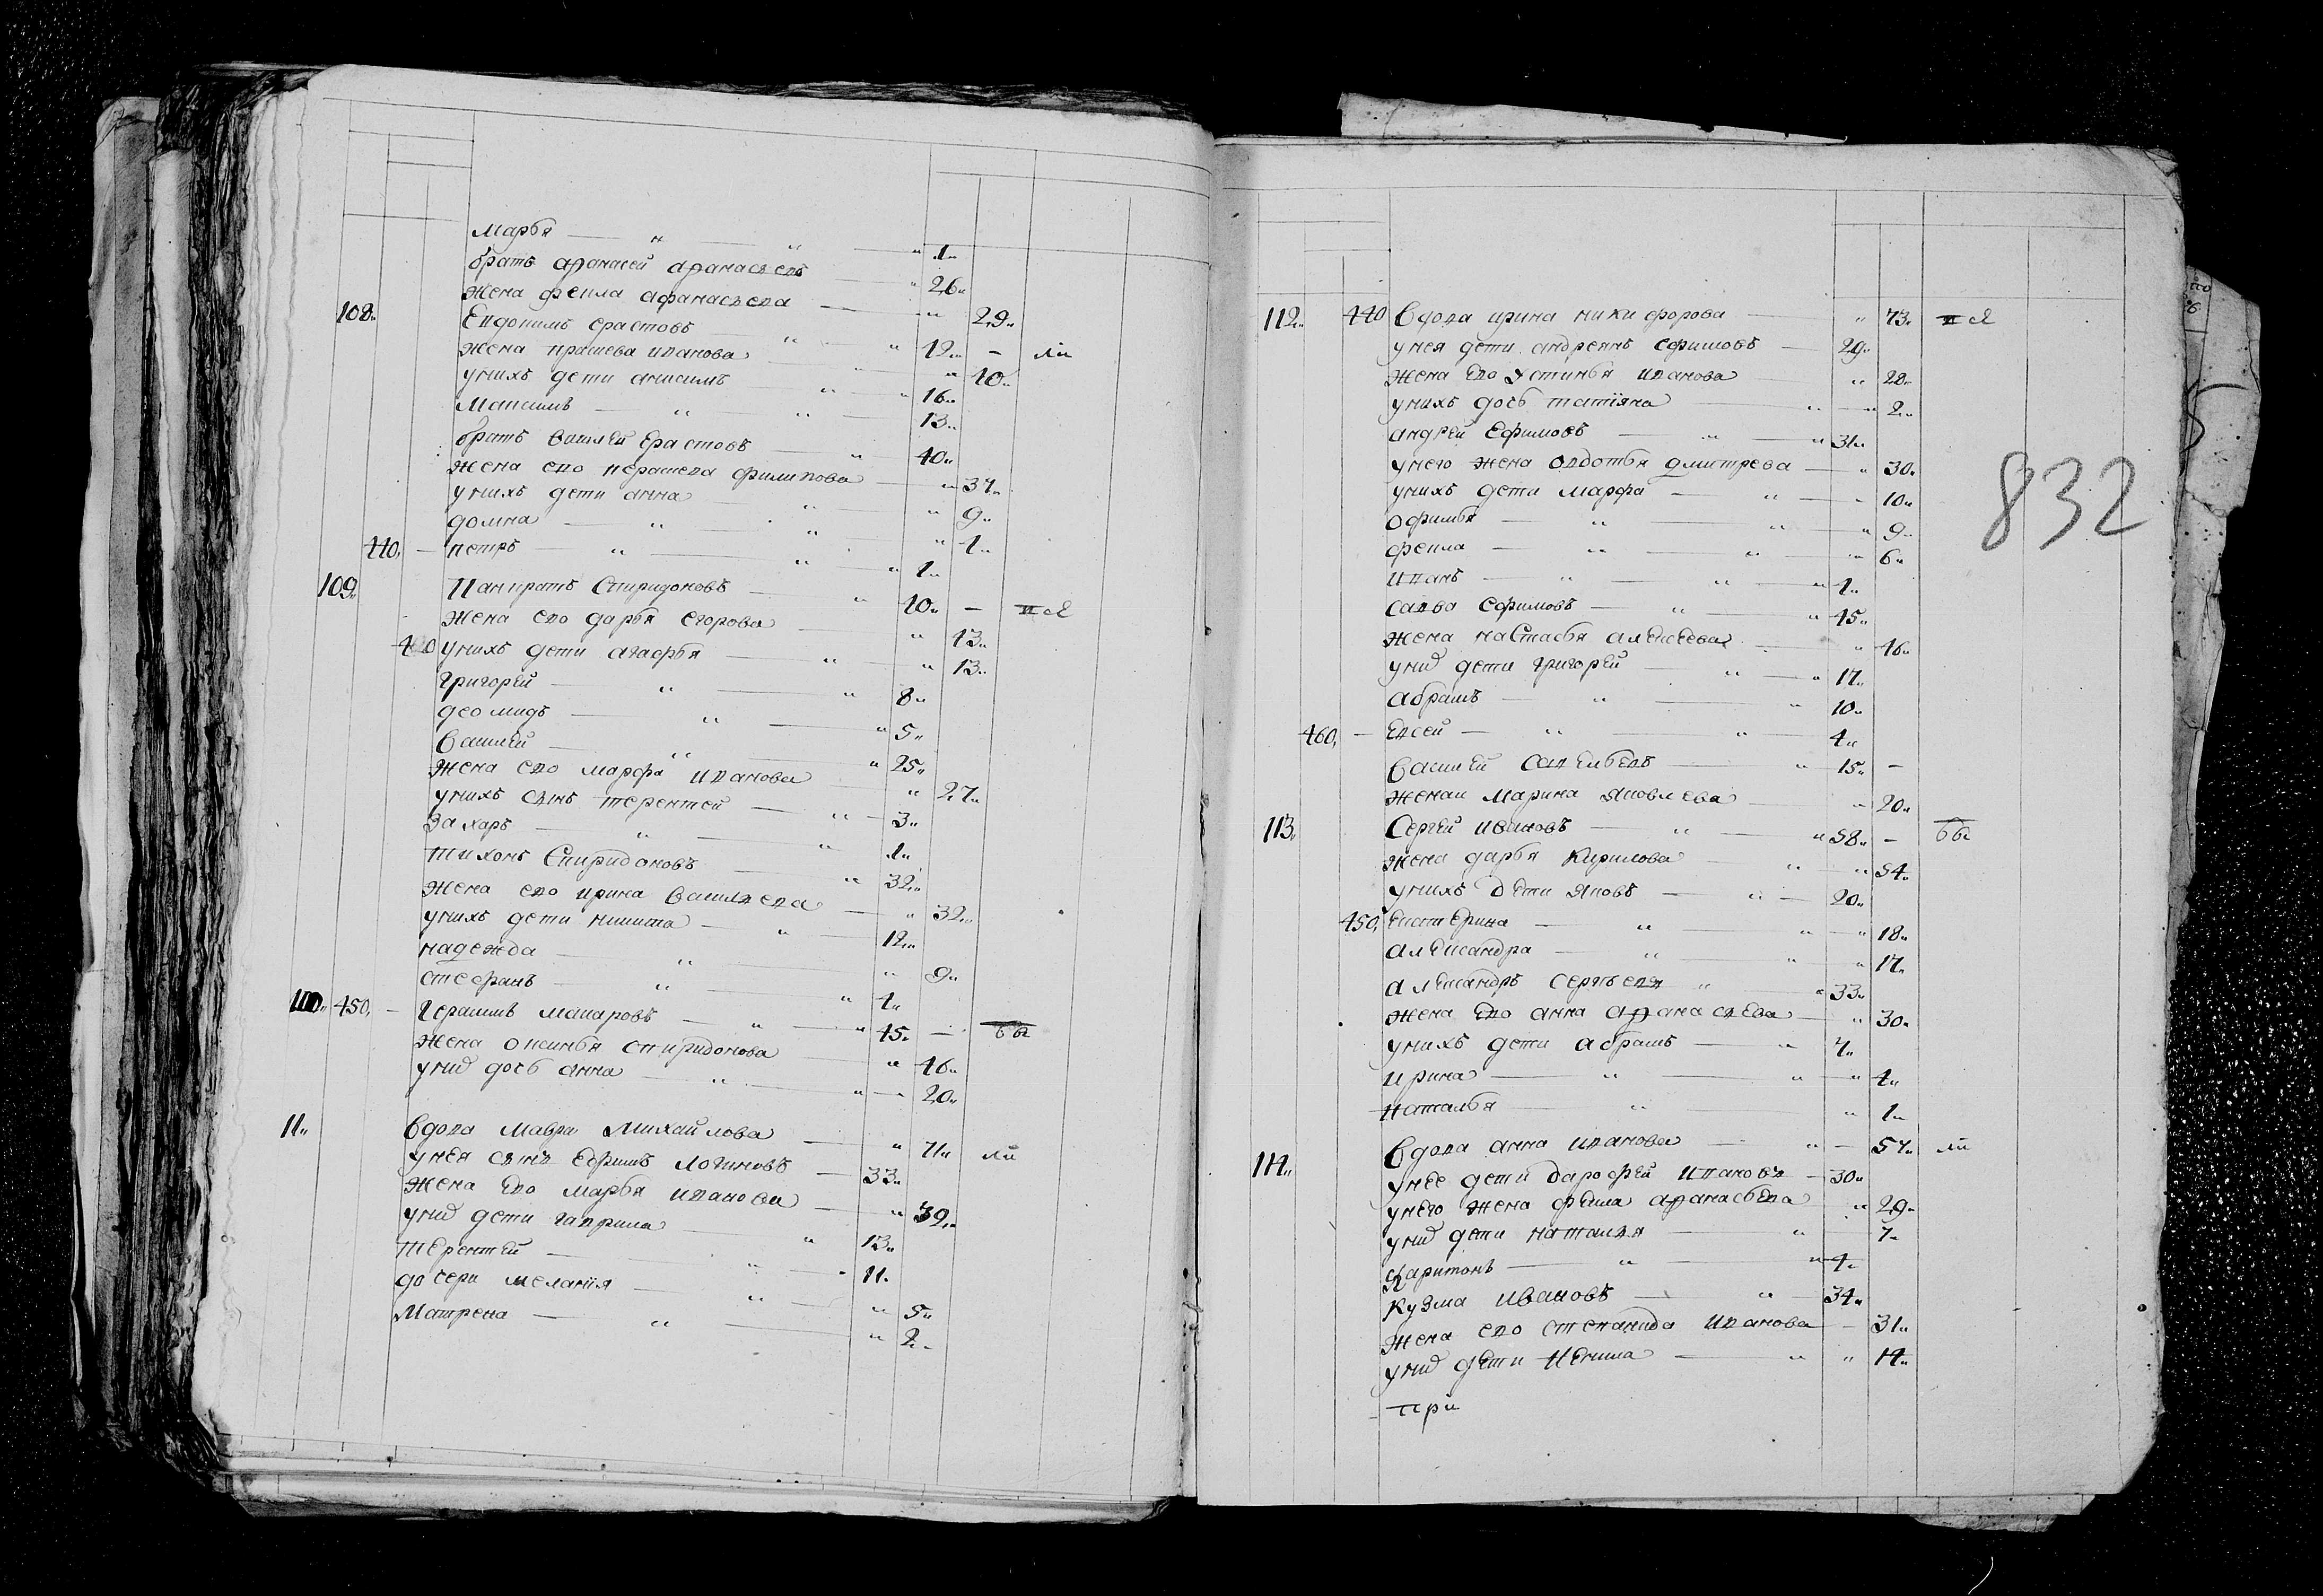 марья — " — " — " 1"
братъ афанасей афанасьевъ — " 26"
жена фекла афанасьева — " 29"
108" Евдокимъ ерастовъ " " 12" — ли
жена прасковa иванова " " 40"
унихъ дети анисимъ " " 16"
Максимъ — " " — 13"
братъ василей ерастовъ — " 40"
жена ево пераскева филипова — " 37"
унихъ дети анна — " — " 9"
домна — " — " — " 1"
440, — петръ — " — " — " 1"
109" Панкратъ Спиридоновъ — " 40" —
жена ево дарья егорова — " 43"
унихъ дети агафья — " — " 13"
григорей — " — " 8"
деомидъ — " — " 5"
василей — " — " 25"
жена ево марфа иванова — " 27"
унихъ сынъ терентей — " — 3"
захаръ — " — " 1"
тихонъ Спиридоновъ — " 32"
жена ево ирина васильева — " 32"
унихъ дети никита — " — 12"
надежда — " — " 9"
стефанъ — " — " 4"
110" 450, — герасимъ макаровъ — " — " 45" —
жена оксинья спиридонова " 46"
уних дочь анна — " — " — 20"
11" вдова мавра михайлова — " 71" ли
унея сынъ ефимъ логиновъ — 33"
жена ево марья иванова — " 39"
уних дети гаврила — " 13"
терентей — " — " 11"
дочери мелания — " — " 5"
Матрена — " — " 2"
832
112" 440 вдова ирина никифорова — " 73"
унея дети андреянъ ефимовъ — 29"
жена ево устинья иванова — " 28"
унихъ дочь татияна — " — " 2"
андрей ефимовъ — " — " 31"
унего жена овдотья дмитрева — " 30"
унихъ дети марфа — " — 10"
офимья — " " — " 9"
фекла — " — " — " 6"
иванъ — " — " — " 1"
савва ефимовъ — " — " 45"
жена настасья алексеева — " 46"
уних дети григорей — " — " 17"
абрамъ — " — " 10"
460, — евсей — " — " — 4"
василей савельевъ — " 15" —
женаи марина яковлева — " 20"
113" Сергей ивановъ — " — " 58" —
жена дарья кирилова — " " 54"
унихъ дети яковъ — " — 20"
450, екатерина — " — " — " 18"
александра — " — " " 17"
александръ сергеевъ " — " 33"
жена ево анна афанасьева — " 30"
унихъ дети абрамъ — " 7"
ирина — " — " — " 4"
наталья — " — " 1"
114" вдова анна иванова — " — 57" ли
унее дети дарофей ивановъ — 30"
унего жена фекла афанасьева " 29"
уних дети наталья — " 7"
харитонъ — " — " 4"
кузма ивановъ — " — 34"
жена ево степанида иванова — 31"
уних дети — " " 14"
при